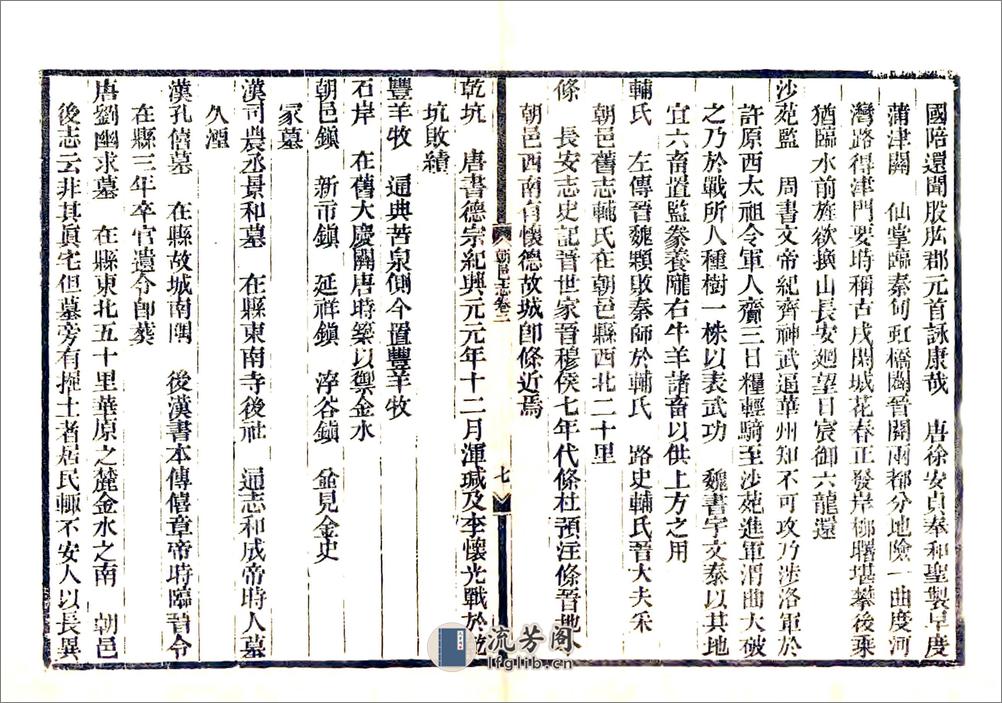 國陪還聞股肱郡元首詠康哉　唐徐安貞奉和聖製早度
蒲津關　仙掌臨秦甸虹橋闢晉關兩都分地險一曲度河
灣路得津門要時稱古戍閒城花春正發岸柳曙堪攀後乘
猶臨水前旌欲換山長安廻望日宸御六龍還
沙苑監　周書文帝紀齊神武逼華州知不可攻乃涉洛軍於
許原西太祖令軍人齎三日糧輕騎至沙苑進軍渭曲大破
之乃於戰所人種樹一株以表武功　魏書宇文泰以其地
宜六畜置監豢養隴右牛羊諸畜以供上方之用
輔氏　左傳晉魏顆敗秦師於輔氏　路史輔氏晉大夫采
朝邑舊志輔氏在朝邑縣西北二十里
條　長安志史記晉世家晉穆侯七年代條杜預注條晉地今
朝邑西南有懷德故城卽條近焉
朝邑志卷二
七
乾坑　唐書德宗紀興元元年十二月渾瑊及李懷光戰於乾
坑敗績
豐羊牧　通典苦泉側今置豐羊牧
石岸　在舊大慶關唐時築以禦金水
朝邑鎮　新市鎮　延祥鎮　　谷鎮　並見金史
冢墓
漢司農丞景和墓　在縣東南寺後社　通志和成帝時人墓
久湮
漢孔僖墓　在縣故城南隅　後漢書本傳僖章帝時臨晉令
在縣三年卒官遺令卽葬
唐劉幽求墓　在縣東北五十里華原之麓金水之南　朝邑
後志云非其眞宅但墓旁有握土者居民輒不安人以長異
流芳阁
lfglib.com